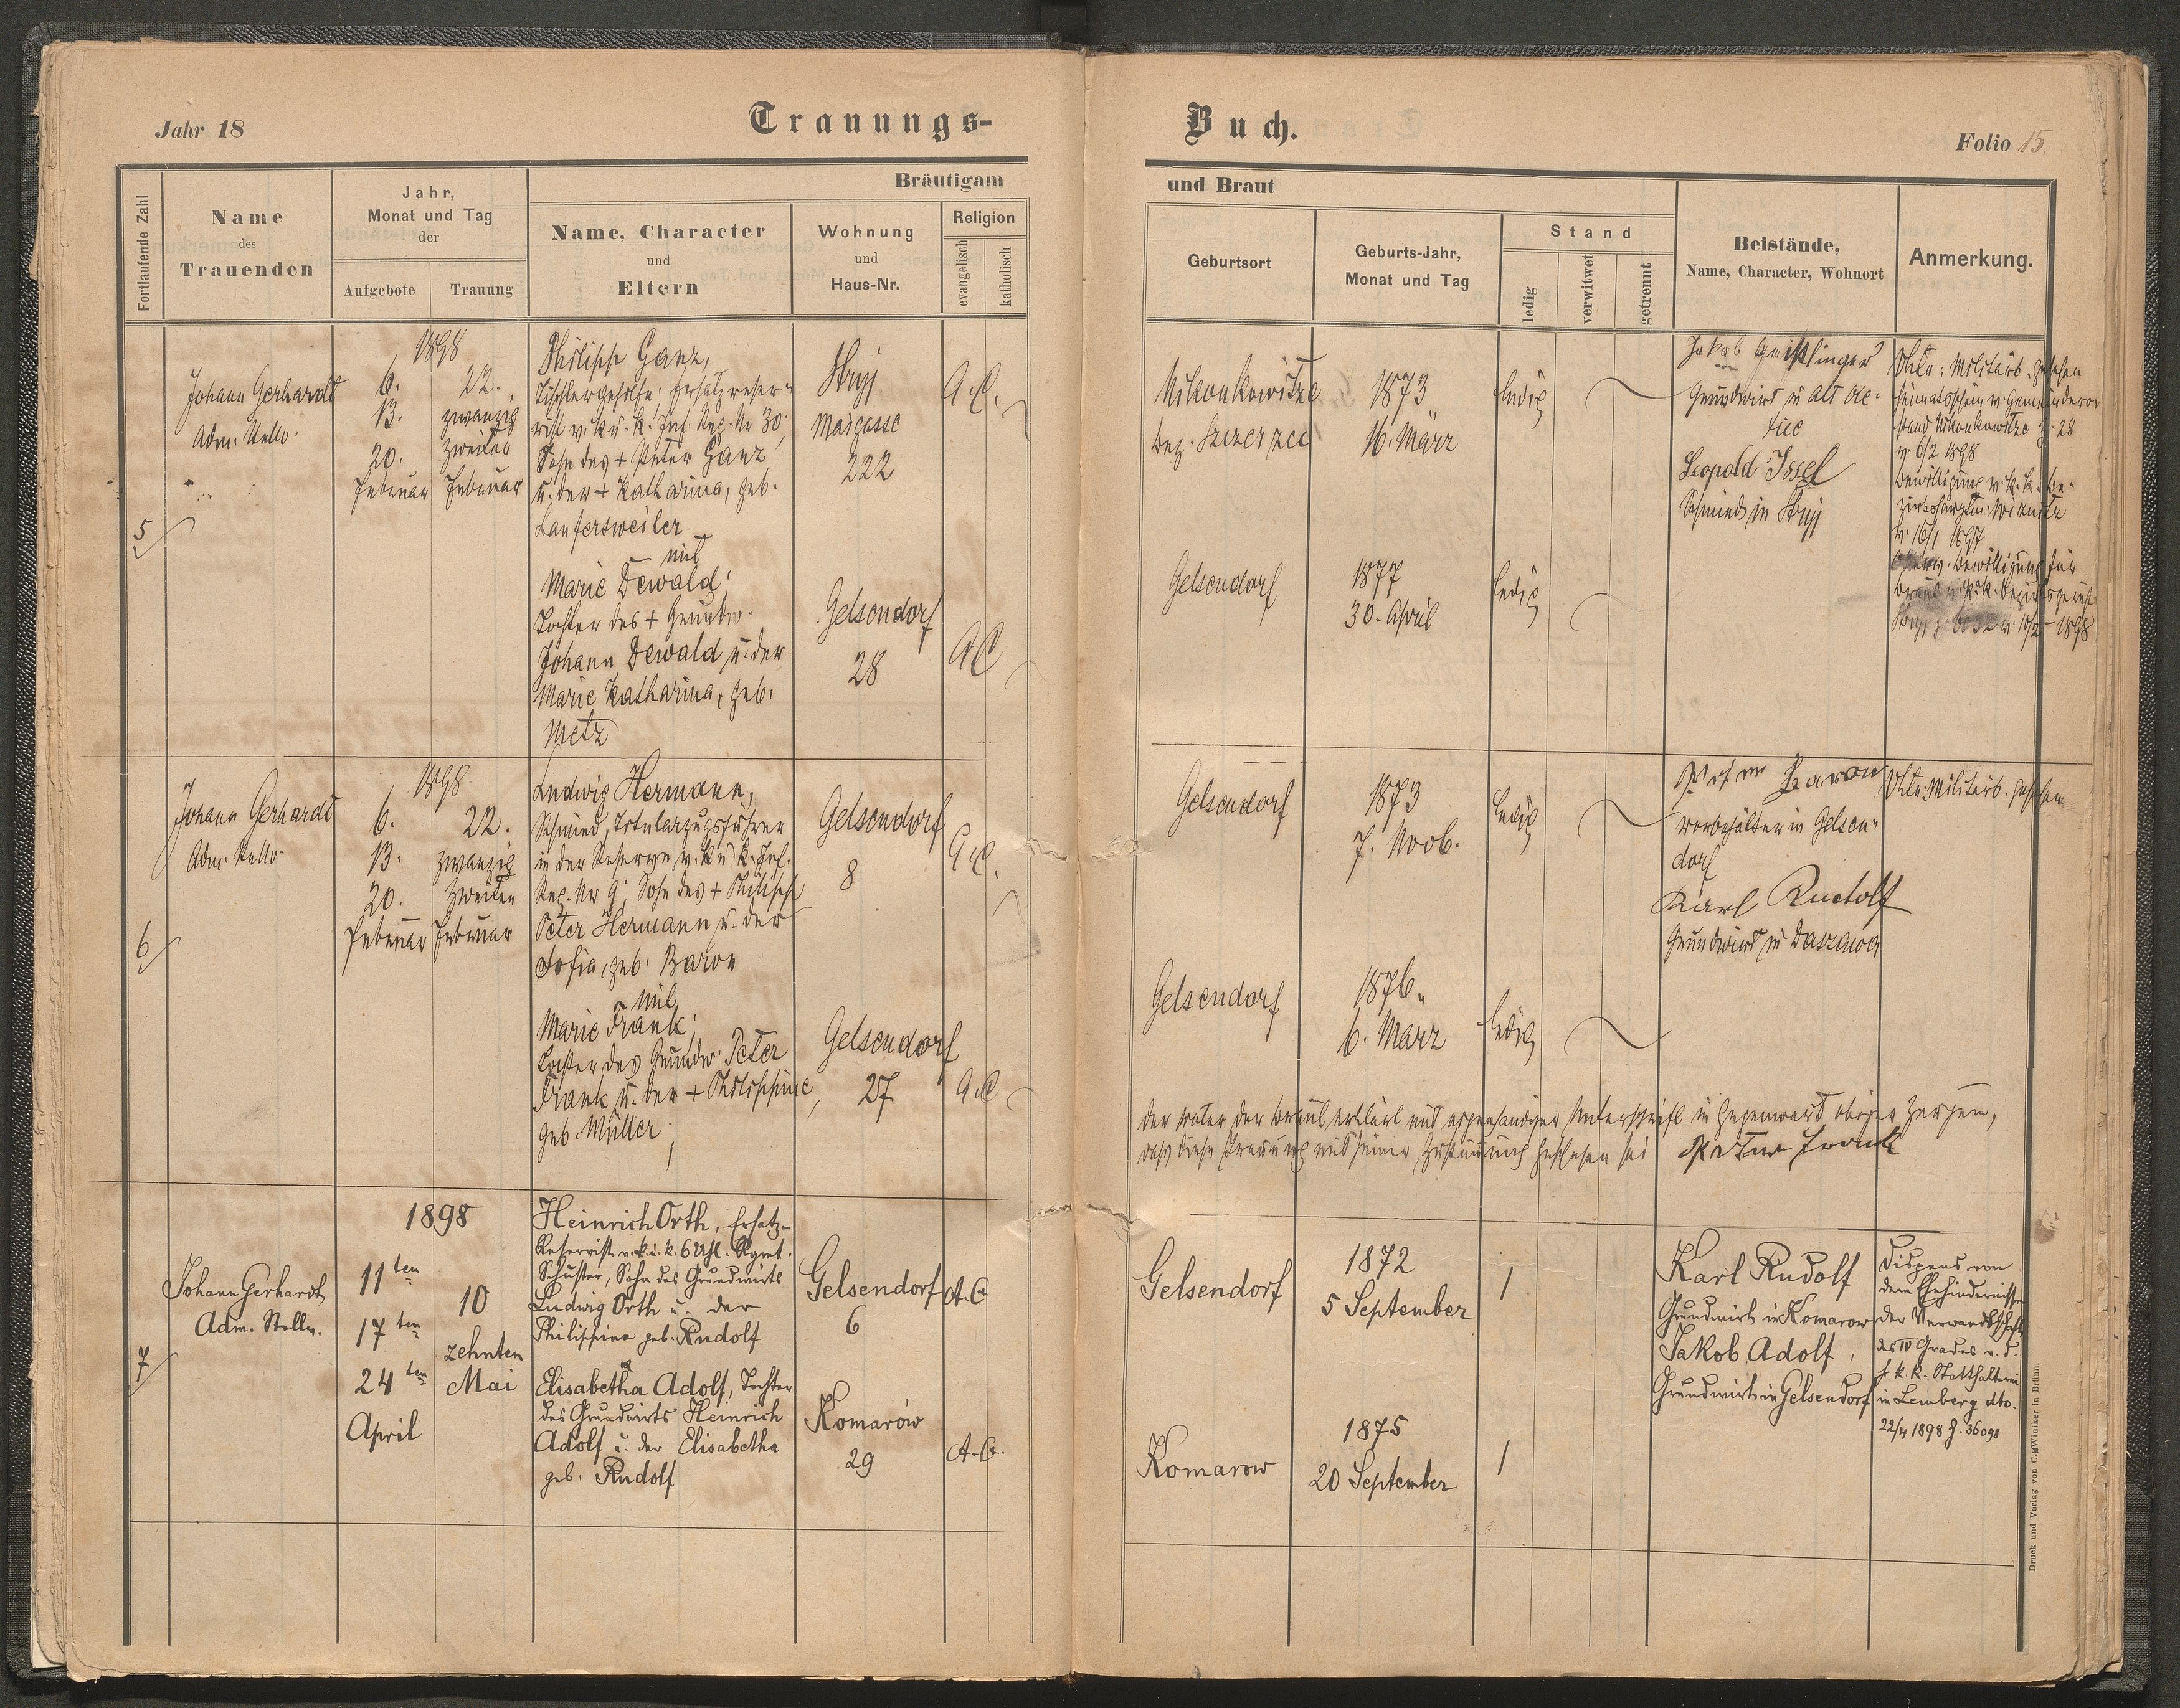 Jahr 18
Trauungs-
Fortlaufende Zahl
Name
des
Trauenden
Jahr,
Monat und Tag
der
Aufgebote
Trauung
Bräutigam
Name, Character
und
Eltern
Wohnung
und
Haus-Nr.
Religion
evangelisch
katholisch
5
Johann Gerhardt
Adm.
1898
6.
13.
20.
Februar
22.
zwanzig
zweiten
Februar
Philipp Ganz,
Tischlergehilfe, Ersatzreser-
vist v. k. u. k. Inf. Reg. Nr 30;
Sohn des + Peter Ganz
u. der + Katharina, geb.
Laufersweiler
mit
Marie Dewald;
Tochter des + Grundw.
Johann Dewald u. der
Marie Katharina, geb.
Metz
Stryj
222
A. C.
Gelsendorf
28
A C
6
Johann Gerhardt
Adm.
1898
6.
13.
20.
Februar
22.
zwanzig
zweiten
Februar
Ludwig Hermann,
Schmied, Titularzugsführer
in der Reserve v. k. u. k. Inf.
Reg. Nr 9; Sohn des + Philipp
Peter Hermann u. der
Sofia, geb. Baron
mit
Marie Frank;
Tochter des Grundw. Peter
Frank u. der + Philippine,
geb. Müller;
Gelsendorf
8
A. C.
Gelsendorf
27
A. C
7
Johann Gerhardt
Adm. Stellv.
1898
11ten
17ten
24ten
April
10
zehnten
Mai
Heinrich Orth, Ersatz-
Reservist v. k. u. k. 6 Uhl. Rgmt.
Schuster, Sohn des Grundwirts
Ludwig Orth u. der
Philippine geb. Rudolf
Elisabetha Adolf, Tochter
des Grundwirts Heinrich
Adolf u. der Elisabetha
geb. Rudolf
Gelsendorf
6
A. C.
Komarów
29
A. C.
Buch.
Folio 15.
und Braut
Geburtsort
Geburts-Jahr,
Monat und Tag
Stand
ledig
verwitwet
getrennt
Beistände,
Name, Character, Wohnort
Anmerkung.
Bez. Szczerzec
1873
16. März
ledig
Jakob
Grundwirt
Leopold Issel
Schmied in Stryj
v. 6/2 1898
v. 16/1 1897
Gelsendorf
1877
30. April
ledig
Gelsendorf
1873
7. Novb.
ledig
Baron
in Gelsen-
dorf
Karl Rudolf
Grundwirt in Daszawa
Gelsendorf
1876
6. März
ledig
Der Vater der Braut erklärt mit eigenhändiger Unterschrift in Gegenwart obiger Zeugen,
dass diese Trauung mit seiner Zustimmung geschehen sei Peter Frank
Gelsendorf
1872
5 September
1
Karl Rudolf
Grundwirt in Komarow
Jakob Adolf,
Grundwirt in Gelsendorf
Dispens von
dem Ehehindernisse
der Verwandtschaft
des IV Grades v. d.
h. k. k. Statthalterei
in Lemberg dto.
22/4 1898 Z. 36098
Komarow
1875
20 September
1
Druck und Verlag von C. Winiker in Brünn.